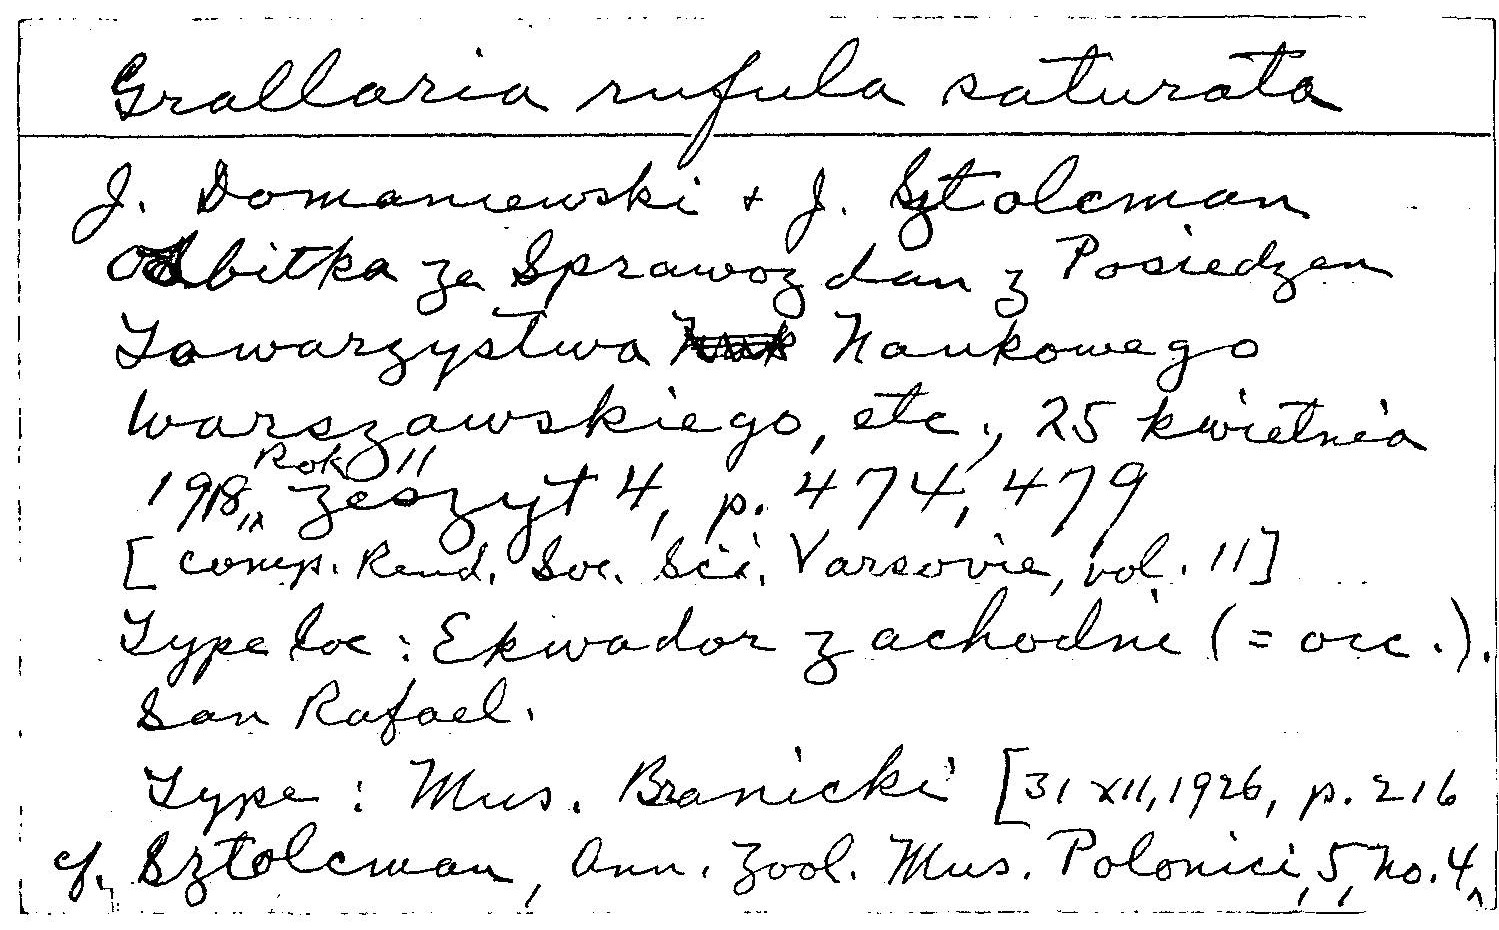 Grallaria rufula saturata
J. Domaniewski + J. Sztolcman
Odbitka ze Sprawozdan z Posiedzen
Towarzystwa Naukowego
Warszawskiego, etc., 25 kwietnia
Rok 11
1918, zeszyt 4, p. 474, 479
[Comp. Rend. Soc. Sci. Varsovie, vol. 11]
Type loc: Ekwador zachodni (= occ.).
San Rafael.
Type: Mus. Branicki [31 XII, 1926, p. 216
cf. Sztolcman, Ann. Zool. Mus. Polonici, 5, no. 4,